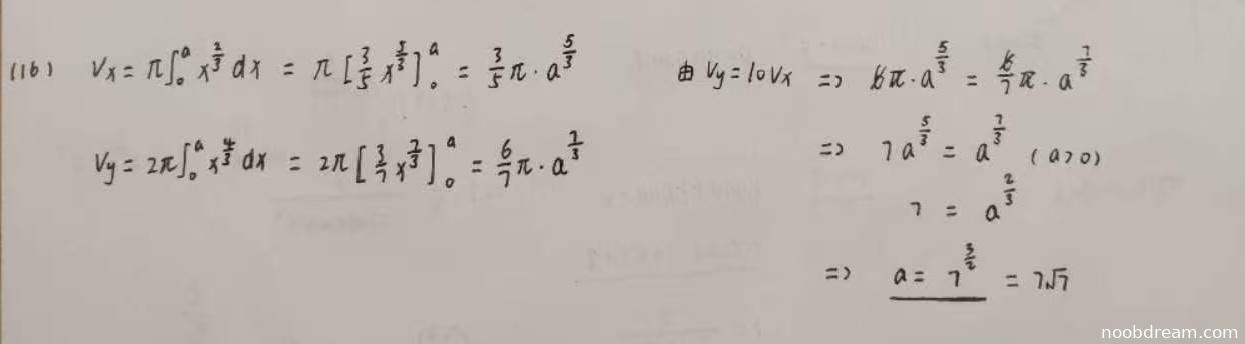 (16) Vx = π∫₀ᵃ x^(2/3) dx = π [3/5 x^(5/3)]₀ᵃ = 3/5 π · a^(5/3)
Vy = 2π∫₀ᵃ x^(4/3) dx = 2π [3/7 x^(7/3)]₀ᵃ = 6/7 π · a^(7/3)
由 Vy = 10Vx => 6π · a^(5/3) = 6/7 π · a^(7/3)
=> 7a^(5/3) = a^(7/3) (a>0)
7 = a^(2/3)
=> a = 7^(3/2) = 7√7
noobdream.com